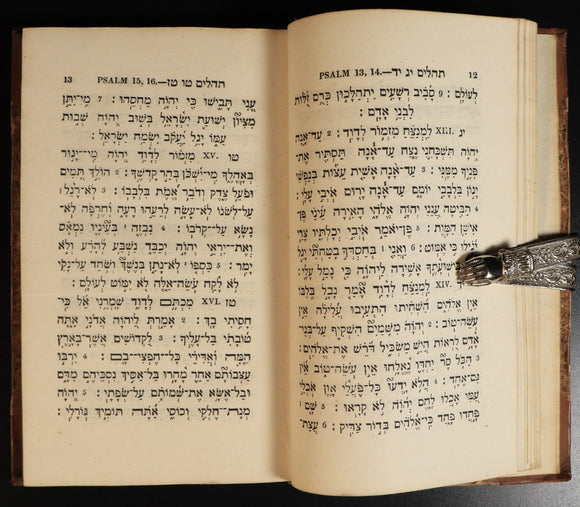 12 תהלים יג יד—.PSALM 13, 14
לְעוֹלָם : 9 סָבִיב רְשָׁעִים יִתְהַלָּכוּן כְּרֻם זֻלּוּת
לִבְנֵי אָדָם :
יג XIII. לַמְנַצֵּחַ מִזְמוֹר לְדָוִד : 2 עַד־אָנָה
יְהוָֹה תִּשְׁכָּחֵנִי נֶצַח עַד־אָנָה תַּסְתִּיר אֶת־
פָּנֶיךָ מִמֶּנִּי : 3 עַד־אָנָה אָשִׁית עֵצוֹת בְּנַפְשִׁי
יָגוֹן בִּלְבָבִי יוֹמָם עַד־אָנָה יָרוּם אֹיְבִי עָלָי :
4 הַבִּיטָה עֲנֵנִי יְהוָֹה אֱלֹהָי הָאִירָה עֵינַי פֶּן־
אִישַׁן הַמָּוֶת : 5 פֶּן־יֹאמַר אֹיְבִי יְכָלְתִּיו צָרַי
יָגִילוּ כִּי אֶמּוֹט : 6 וַאֲנִי בְּחַסְדְּךָ בָטַחְתִּי יָגֵל
בִּישׁוּעָתֶךָ אָשִׁירָה לַיהוָֹה כִּי גָמַל עָלָי :
יד XIV. לַמְנַצֵּחַ לְדָוִד אָמַר נָבָל בְּלִבּוֹ
אֵין אֱלֹהִים הִשְׁחִיתוּ הִתְעִיבוּ עֲלִילָה אֵין
עֹשֵׂה־טוֹב : 2 יְהוָֹה מִשָּׁמַיִם הִשְׁקִיף עַל־בְּנֵי־
אָדָם לִרְאוֹת הֲיֵשׁ מַשְׂכִּיל דֹּרֵשׁ אֶת־אֱלֹהִים :
3 הַכֹּל סָר יַחְדָּו נֶאֱלָחוּ אֵין עֹשֵׂה־טוֹב אֵין
גַּם־אֶחָד : 4 הֲלֹא יָדְעוּ כָּל־פֹּעֲלֵי אָוֶן אֹכְלֵי
עַמִּי אָכְלוּ לֶחֶם יְהוָֹה לֹא קָרָאוּ : 5 שָׁם
פָּחֲדוּ פָחַד כִּי־אֱלֹהִים בְּדוֹר צַדִּיק : 6 עֲצַת־
תהלים טו טז—.PSALM 15, 16 13
עָנִי תָבִישׁוּ כִּי יְהוָֹה מַחְסֵהוּ : 7 מִי־יִתֵּן
מִצִּיּוֹן יְשׁוּעַת יִשְׂרָאֵל בְּשׁוּב יְהוָֹה שְׁבוּת
עַמּוֹ יָגֵל יַעֲקֹב יִשְׂמַח יִשְׂרָאֵל :
טו XV. מִזְמוֹר לְדָוִד יְהוָֹה מִי־יָגוּר
בְּאָהֳלֶךָ מִי־יִשְׁכֹּן בְּהַר קָדְשֶׁךָ : 2 הוֹלֵךְ תָּמִים
וּפֹעֵל צֶדֶק וְדֹבֵר אֱמֶת בִּלְבָבוֹ : 3 לֹא־רָגַל
עַל־לְשֹׁנוֹ לֹא־עָשָׂה לְרֵעֵהוּ רָעָה וְחֶרְפָּה לֹא־
נָשָׂא עַל־קְרֹבוֹ : 4 נִבְזֶה בְּעֵינָיו נִמְאָס
וְאֶת־יִרְאֵי יְהוָֹה יְכַבֵּד נִשְׁבַּע לְהָרַע וְלֹא
יָמִר : 5 כַּסְפּוֹ לֹא־נָתַן בְּנֶשֶׁךְ וְשֹׁחַד עַל־נָקִי
לֹא לָקָח עֹשֵׂה־אֵלֶּה לֹא יִמּוֹט לְעוֹלָם :
טז XVI. מִכְתָּם לְדָוִד שָׁמְרֵנִי אֵל כִּי־
חָסִיתִי בָךְ : 2 אָמַרְתְּ לַיהוָֹה אֲדֹנָי אָתָּה
טוֹבָתִי בַּל־עָלֶיךָ : 3 לִקְדוֹשִׁים אֲשֶׁר־בָּאָרֶץ
הֵמָּה וְאַדִּירֵי כָּל־חֶפְצִי־בָם : 4 יִרְבּוּ
עַצְּבוֹתָם אַחֵר מָהָרוּ בַּל־אַסִּיךְ נִסְכֵּיהֶם מִדָּם
וּבַל־אֶשָּׂא אֶת־שְׁמוֹתָם עַל־שְׂפָתָי : 5 יְהוָֹה
מְנָת־חֶלְקִי וְכוֹסִי אַתָּה תּוֹמִיךְ גּוֹרָלִי :